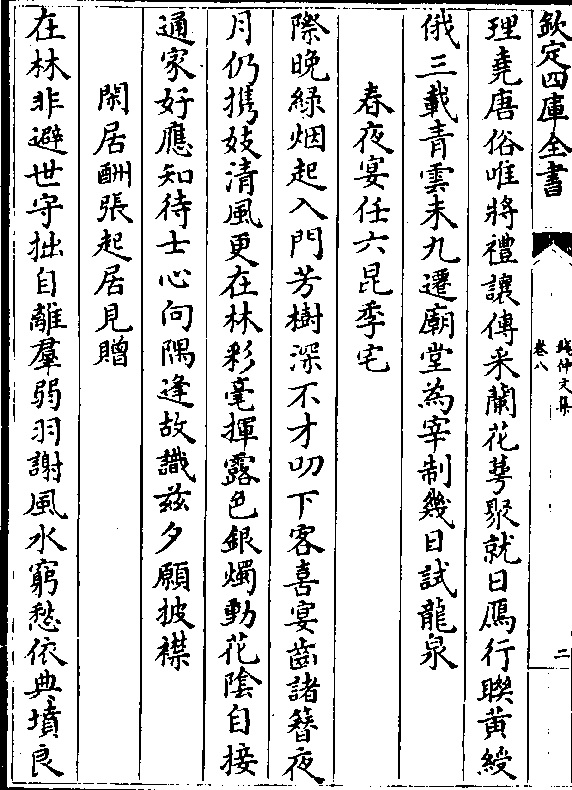 欽定四庫全書
錢仲文集
卷八
二
理堯唐俗唯將禮讓傳采蘭花萼聚就日鴈行聨黄綬
俄三載青雲未九遷廟堂為宰制幾日試龍泉
春夜宴任六昆季宅
際晚緑烟起入門芳樹深不才叨下客喜宴齒諸簪夜
月仍攜妓清風更在林彩毫揮露色銀燭動花陰自接
通家好應知待士心向隅逢故識兹夕願披襟
閑居酬張起居見贈
在林非避世守拙自離羣弱羽謝風水窮愁依典墳良